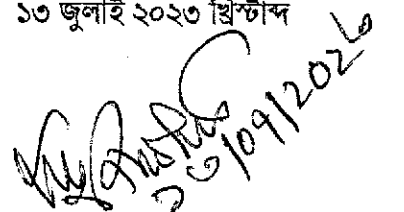 ১৩ জুলাই ২০২৩ খ্রিস্টাব্দ
১৩/০৭/২০২৩